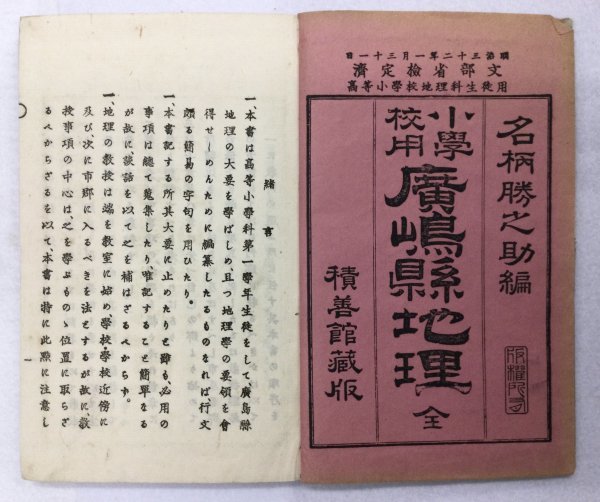 明治三十二年一月三十一日
文部省檢定濟
高等小學校地理科生徒用
名柄勝之助編
版權所有
小學校用
廣嶋縣地理 全
積善館藏版
緒言
一、本書は高等小學科第一學年生徒をして、廣島縣
地理の大要を學ばしめ、且つ地理學の要領を會
得せしめんために編纂したるものなれば、行文
頗る簡易の字句を用ひたり。
一、本書記する所其大要に止めたりと雖も、必用の
事項は總て蒐集したり、唯記すること簡單なる
が故に、談話を以て之を補はざるべからず。
一、地理の教授は、端を教室に始め、學校、學校近傍に
及び、次に市鄕に入るべきを法とするが故に、教
授事項の中心は、之を學ぶものゝ位置に取らざ
るべからざるを以て、本書は特に此點に注意し
一